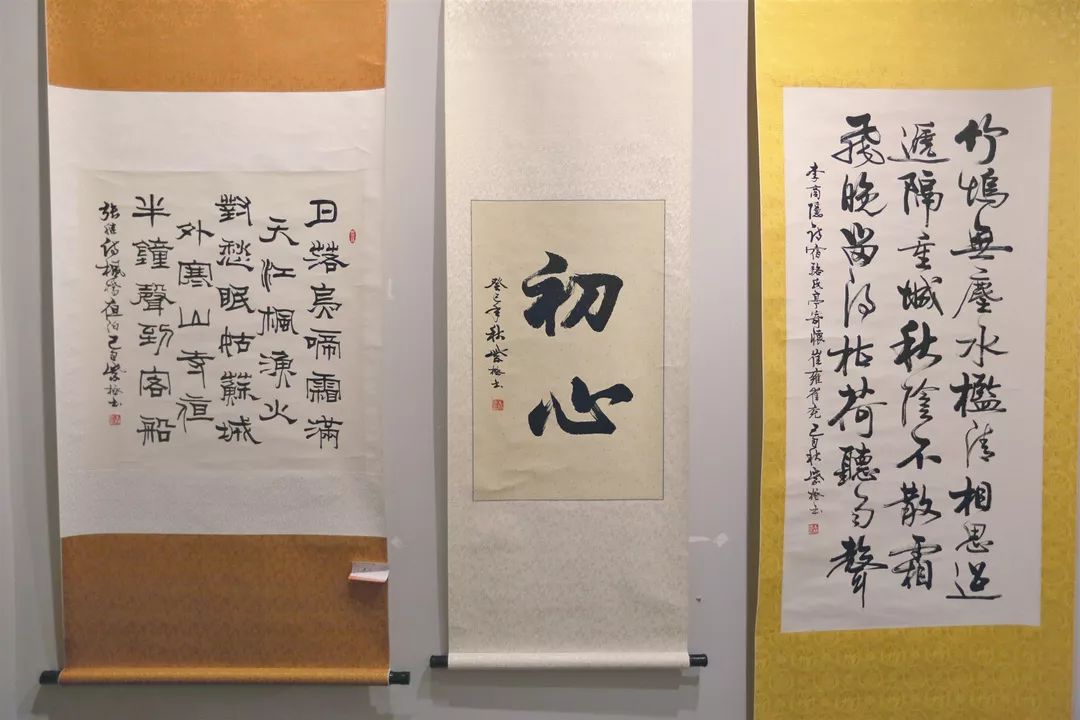 月落烏啼霜滿
天江楓漁火
對愁眠姑蘇城
外寒山寺夜
半鐘聲到客船
張繼詩楓橋夜泊己亥紫書
初心
癸巳年秋紫書
竹塢無塵水檻清相思迢
遞隔重城秋陰不散霜
飛晚留得枯荷聽雨聲
李商隱詩宿駱氏亭寄懷崔雍崔兗己亥秋紫書